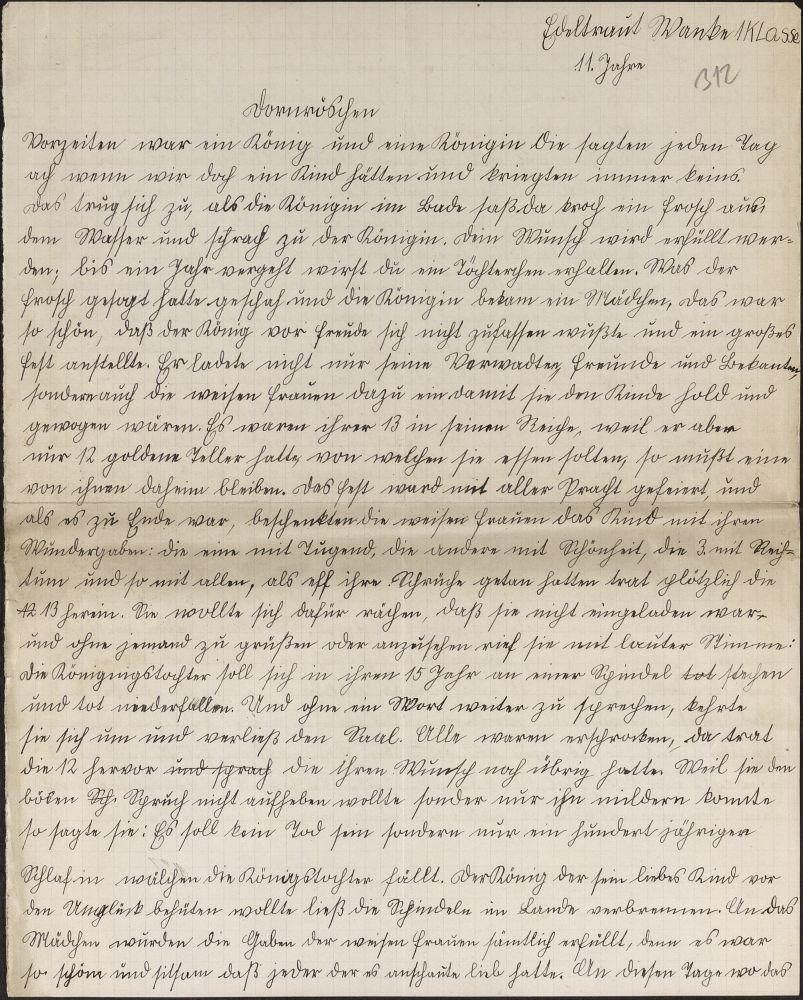 Edeltraut Wanke 1 Klasse
11. Jahre
312
Dornröschen
Vorzeiten war ein König und eine Königin die sagten jeden Tag
ach wenn wir doch ein Kind hätten und kriegten immer keins.
Das trug sich zu, als die Königin im Bade saß da kroch ein Frosch aus
dem Wasser und sprach zu der Königin. Dein Wunsch wird erfüllt wer-
den; bis ein Jahr vergeht wirst du ein Töchterchen erhalten. Was der
Frosch gesagt hatte geschah und die Königin bekam ein Mädchen, das war
so schön, daß der König vor Freude sich nicht zufassen wußte und ein großes
Fest anstellte. Er ladete nicht nur seine Verwadten, Freunde und Bekanten,
sondern auch die weisen Frauen dazu ein damit sie den Kinde hold und
gewogen wären. Es waren ihrer 13 in seinen Reiche, weil er aber
nur 12 goldene Teller hatte, von welchen sie essen solten, so mußt eine
von ihnen daheim bleiben. Das Fest ward mit aller Pracht gefeiert, und
als es zu Ende war, beschenkten die weisen Frauen das Kind mit ihren
Wundergaben: die eine mit Tugend, die andere mit Schönheit, die 3. mit Reich-
tum und so mit allen, als elf ihre Sprüche getan hatten trat plötzlich die
12 13 herein. Sie wollte sich dafür rächen, daß sie nicht eingeladen war,
und ohne jemand zu grüßen oder anzusehen rief sie mit lauter Stimme:
die Könignigstochter soll sich in ihren 15 Jahr an einer Spindel tot stechen
und tot niederfallen. Und ohne ein Wort weiter zu sprechen, kehrte
sie sich um und verließ den Saal. Alle waren erschrocken, da trat
die 12 hervor und sprach die ihren Wunsch noch übrig hatte. Weil sie den
bösen Sch. Spruch nicht aufheben wollte sonder nur ihn mildern konnte
so sagte sie: Es soll kein Tod sein sondern nur ein hundert jähriger
Schlaf in wälchen die Königstochter fällt. Der König der sein liebes Kind vor
den Unglück behüten wollte ließ die Spindeln im Lande verbrennen. An das
Mädchen wurden die Gaben der weisen Frauen sämtlich erfüllt, denn es war
so schön und sitsam daß jeder der es anschaute lieb hatte. An diesen Tage wo das